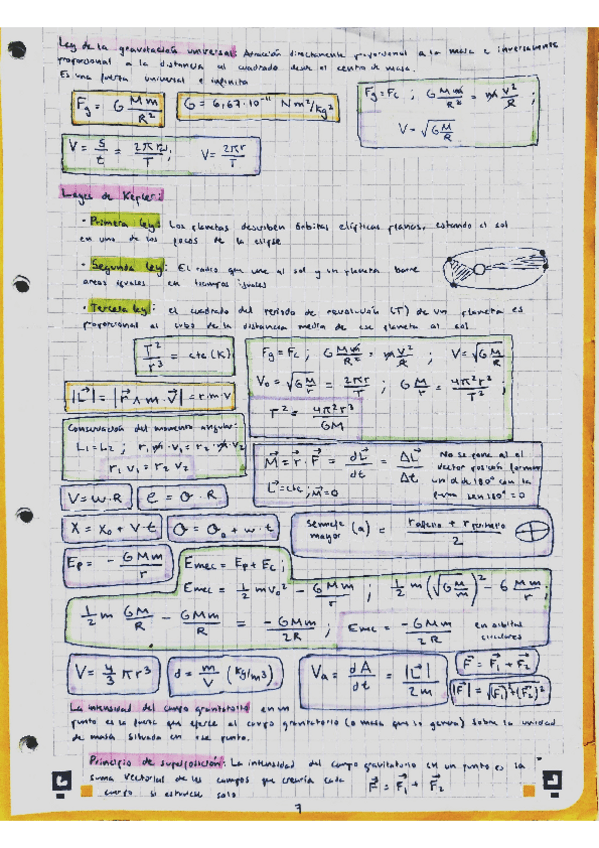 Ley de la gravotación universal: Atracción directamente proporcional a la masa e inversamente
proporcional a la distancia al cuadrado desde el centro de masa.
Es una fuerza universal e infinita
Fg = G Mm/R²
G = 6,67·10⁻¹¹ Nm²/kg²
Fg = Fc ; G Mm/R² = m v²/R ;
V = √(G M/R)
V = s/t = 2πr/T ; V = 2πr/T
Leyes de Kepler:
· Primera ley: Los planetas describen órbitas elípticas planas, estando el sol
en uno de los focos de la elipse
· Segunda ley: El radio que une al sol y un planeta barre
areas iguales en tiempos iguales
· Tercera ley: el cuadrado del periodo de revolución (T) de un planeta es
proporcional al cubo de la distancia media de ese planeta al sol.
T²/r³ = cte (K)
Fg = Fc ; G Mm/R² = m v²/R ; V = √(G M/R)
V₀ = √(G M/r) = 2πr/T ; G M/r = 4π²r²/T² ;
T² = 4π²r³/GM
|L⃗| = |r⃗ ∧ m · v⃗| = r·m·v
Conservación del momento angular:
L₁ = L₂ ; r₁ m · v₁ = r₂ · m · v₂
r₁ v₁ = r₂ v₂
M⃗ = r⃗ · F⃗ = dL⃗/dt = ΔL⃗/Δt
L⃗ = cte ; M⃗ = 0
No se pone al
vector posición forman
un α de 180° con la
fuerza sen 180° = 0
V = w · R
e = θ · R
X = X₀ + V · t
θ = θ₀ + w · t
semieje
mayor (a) = (r afelio + r perihelio)/2
Ep = - GMm/r
Emec = Ep + Ec ;
Emec = 1/2 m v₀² - GMm/r ; 1/2 m (√(G M/m))² - G Mm/r ;
1/2 m GM/R - GMm/R = -GMm/2R ; Emec = -GMm/2R en orbitas
circulares
V = 4/3 π r³
d = m/V (kg/m³)
Va = dA/dt = |L⃗|/2m
F⃗ = F⃗₁ + F⃗₂
|F⃗| = √(F₁)² + (F₂)²
La intensidad del campo gravitatorio en un
punto es la fuerza que ejerce el campo gravitatorio (o masa que lo genera) sobre la unidad
de masa situada en ese punto.
Principio de superposición: La intensidad del campo gravitatorio en un punto es la
suma vectorial de los campos que crearía cada F⃗ = F⃗₁ + F⃗₂
cuerpo si estuviese solo
7